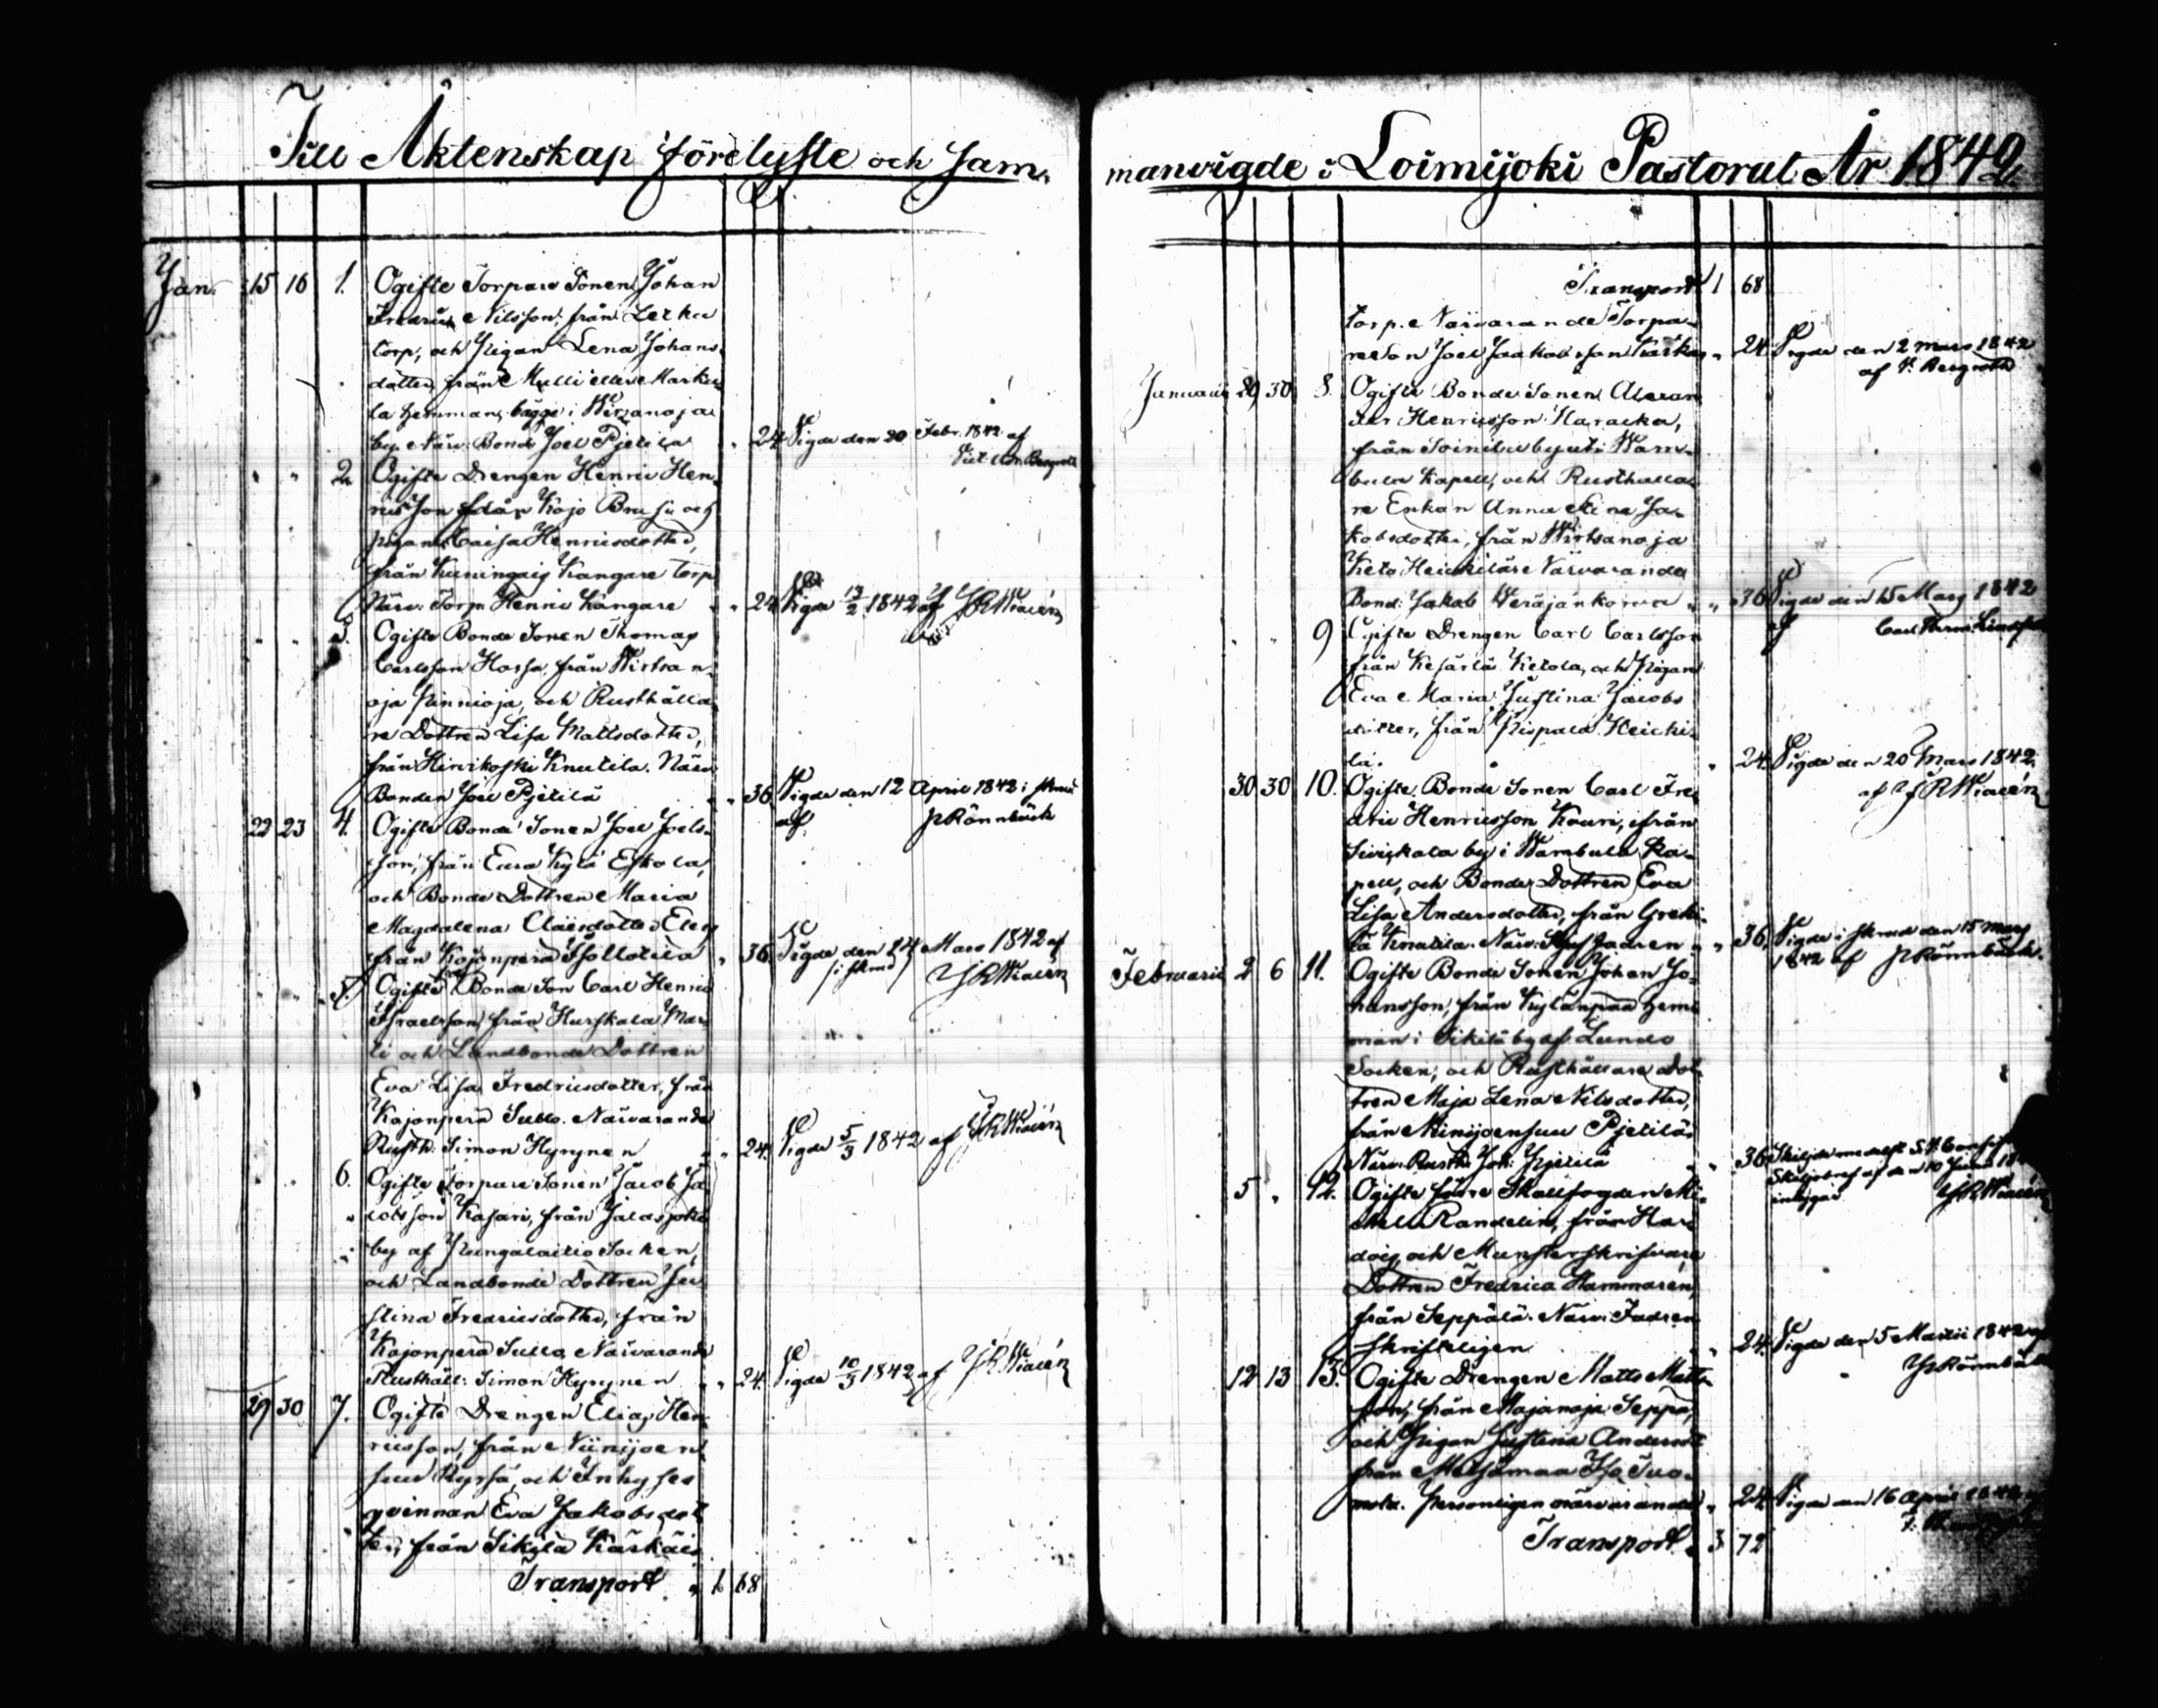 Till Äktenskap förelyste och Sam-
Jan. 15 16 1. Ogifte Torpare Sonen Johan
Fredric Nilsson, från
torp, och Pigan Lena Johans
dotter, från Mulli eller Marku-
la hemman, bägge i Wirzanoja
by. Närv: Bond. Joel Pjetilä " 24 Vigde den 20 Febr. 1842 af
" " 2. Ogifte Drengen Henric Hen-
ricsson från Kojo och
pigan Caisa Henricsdotter,
från Kuningais Kangare torp
Närv: Torp: Henric Kangare " 24 Vigde 13/2 1842 af
" " 3. Ogifte Bonde Sonen Thomas
Carlsson Hossa, från Wirtsan-
oja Pinnioja, och Rusthålla-
re Dottren Lisa Mattsdotter,
från Hirvikoski Knutila. Närv
Bonden Joel Pjetilä " 36 Vigde den 12 April 1842 i
af Rönnbäck
22 23 4. Ogifte Bonde Sonen Joel Joels-
son, från Eura Kylä Eskola,
och Bonde Dottren Maria
Magdalena
från Kojonperä " 36 Vigde den 24 Mars 1842 af
" " 5. Ogifte Bonde Son Carl Henric
Israelsson från Hurskala Mar-
ti och Landbonde Dottren
Eva Lisa Fredricsdotter, från
Kojonperä Sullo. Närvarande
Rusth: Simon Hyrynen " 24. Vigde 5/3 1842 af
" " 6. Ogifte Torpare Sonen Jacob Ja-
cobsson Kasari, från
by af Pungalaitio Socken,
och Landbonde Dottren Ju-
stina Fredricsdotter, från
Kojonperä Sullo, Närvarande
Rusthåll: Simon Hyrynen " 24. Vigde 10/3 1842 af
29 30 7. Ogifte Drengen Elias Hen-
ricsson, från Niinijoen
suu och Inhyses
qvinnan Eva Jakobsdot
ter, från Sikilä Kärkäis
Transport " 1 68
manvigde i Loimijoki Pastorat År 1842.
Transport 1 68
torp. Närvarande Torpa-
re Son Joel Jaakobsson " 24 Vigde den 2 Mars 1842
af
Januarii 29 30 8. Ogifte Bonde Sonen Alexan
der Henricsson Haracka,
från Soinila by uti Wam-
bula Kapell, och Rusthålla-
re Enkan Anna Stina Ja-
kobsdotter, från Wirtsanoja
Keto Heickilä Närvarande
Bond: Jakob Weräjänkorva " " 36 Vigde den 15 Mars 1842
af Carl
" " 9 Ogifte Drengen Carl Carlsson
från Kesärlä Ketola, och Pigan
Eva Maria Justina Jacobs
dotter, från Pispala Heicki-
lä. " 24. Vigde den 20 Mars 1842
af
30 30 10. Ogifte Bonde Sonen Carl Fre
dric Henricsson Kouri, från
by i Wambula Ka-
pell, och Bonde Dottren Eva
Lisa Andersdotter, från
Knutila. Närv: Fadren " " 36. Vigde i den 15 Mars
1842 af Rönnbäck.
Februarii 2 6 11. Ogifte Bonde Sonen Johan Jo-
hansson, från Kylänpää hem-
man i by af Lundo
Socken, och Rusthållare Dot
tren Maja Lena Nilsdotter,
från Niinijoensuu Pjetilä.
Närv: Rusth: Joh: Pjetilä " 36
af den 10 Junii
5 " 12. Ogifte förre Skallfogden Mi-
chel Randelin, från
och Munsterskrifvare
Dottren Fredrica Hammarén,
från Seppälä. Närv: Fadren
Skrifteligen " 24. Vigde den 5 Martii 1842 af
Rönnbäck
12 13 13. Ogifte Drengen Matts Matts-
son, från Majanoja Seppä,
och Pigan Justina Andersd:
från Metsämaa Iso Tuo-
mola. Personligen närvarande " 24. Vigde den 16 April
Transport " 3 72